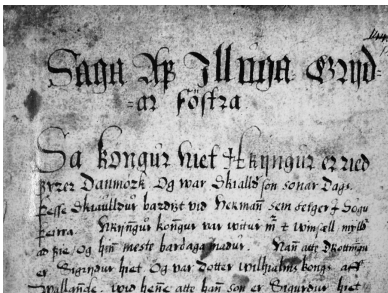 Saga Af Illuga Gryd-
=ar fostra
Sa kongur hiet Hringur er ried
fyrer Danmork Og war Skialld son sonar Dags.
þesse Skiaulldur bardist vid Herman sem seiger i Sogu
þeirra. Hringur kongur var vitur m̄ og vinsæll milld
ad fie/ Og hin meste bardaga madur. Han atte drottningu
er Sigrydur hiet Og var dotter wilhialms kongs aff
Wallande. wid henne atte han son er Sigurdur hiet